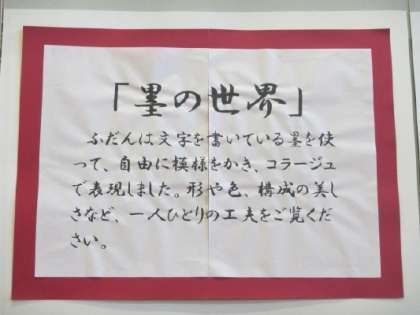 「墨の世界」
ふだんは文字を書いている墨を使
って、自由に模様をかき、コラージュ
で表現しました。形や色、構成の美し
さなど、一人ひとりの工夫をご覧くだ
さい。